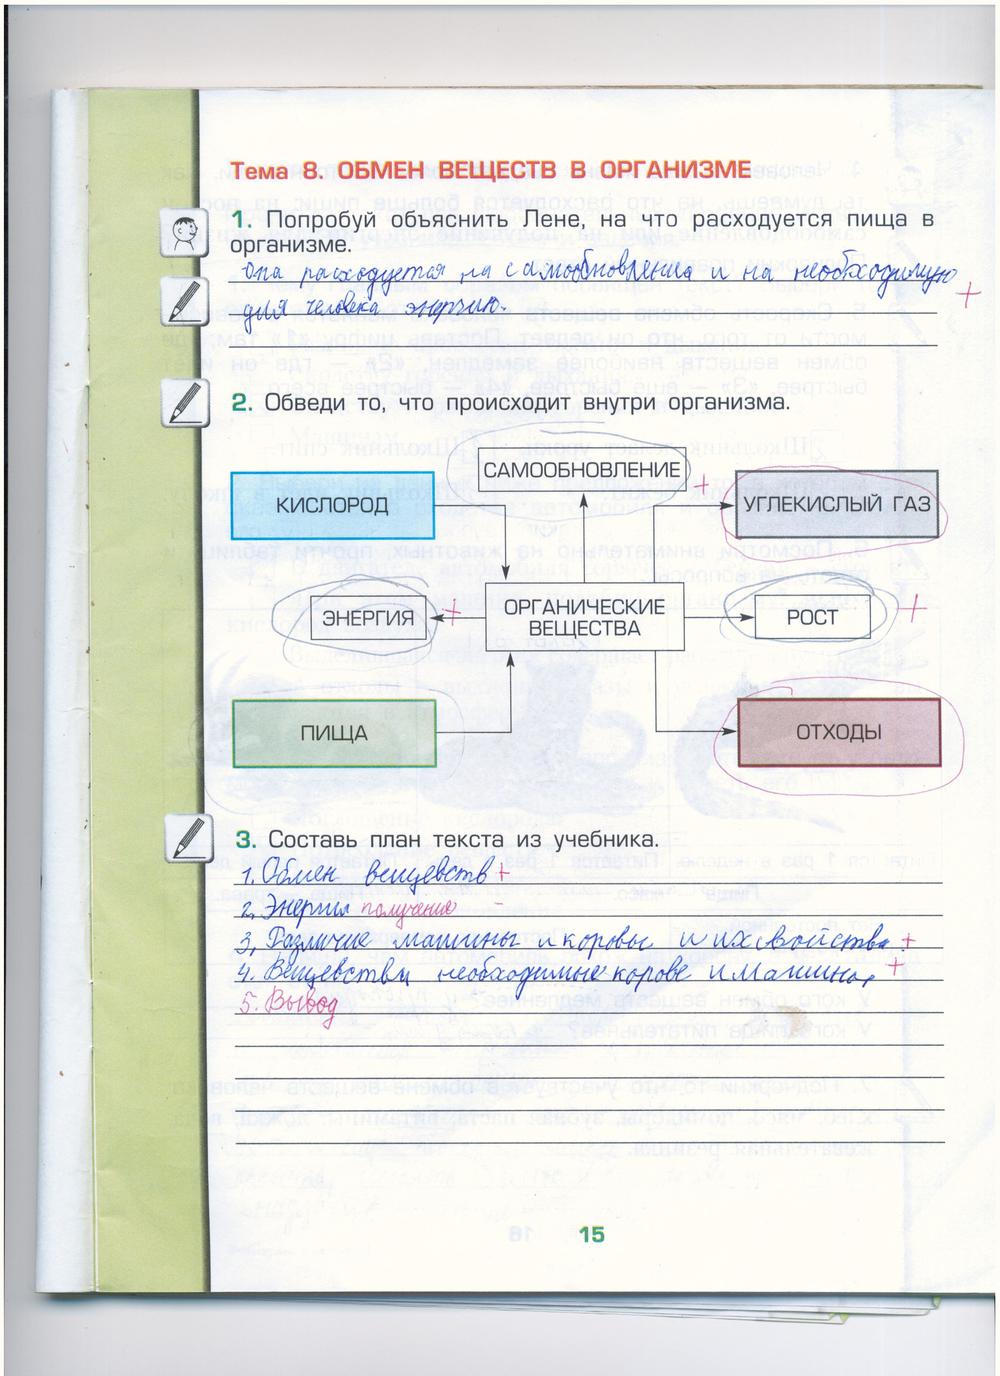 Тема 8. ОБМЕН ВЕЩЕСТВ В ОРГАНИЗМЕ
1. Попробуй объяснить Лене, на что расходуется пища в
организме.
Она расходуется на самообновления и на необходимую
для человека энергию.
2. Обведи то, что происходит внутри организма.
САМООБНОВЛЕНИЕ
КИСЛОРОД
УГЛЕКИСЛЫЙ ГАЗ
ЭНЕРГИЯ
ОРГАНИЧЕСКИЕ
ВЕЩЕСТВА
РОСТ
ПИЩА
ОТХОДЫ
3. Составь план текста из учебника.
1. Обмен вещевств +
2. Энергия получение -
3, Различие машины и коровы и их свойства. +
4. Вещевства, необходимые корове и машине, +
5. Вывод
15